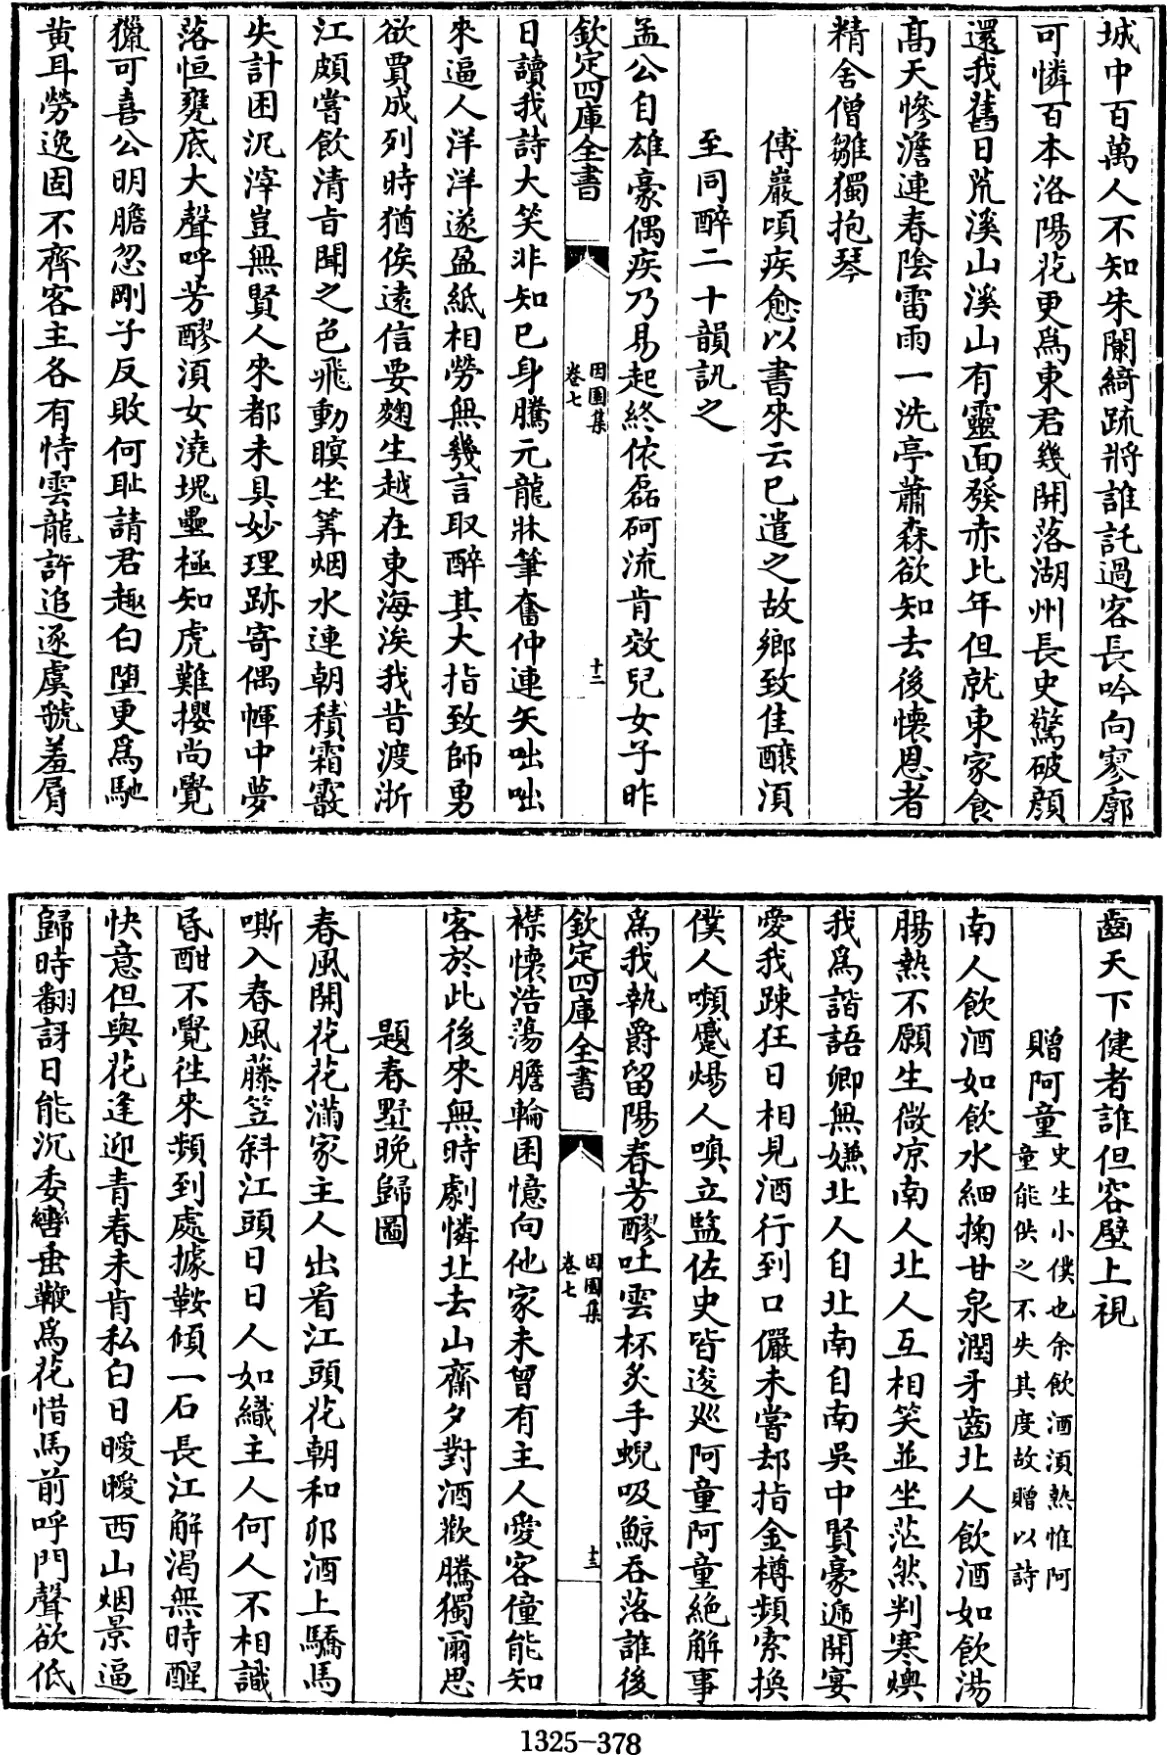 城中百萬人不知朱闌綺疏將誰託過客長吟向寥廓
可憐百本洛陽花更爲東君幾開落湖州長史驚破顔
還我舊日荒溪山溪山有靈面發赤比年但就東家食
髙天慘澹連春隂雷雨一洗亭蕭森欲知去後懐恩者
精舍僧雛獨抱琴
傅巖頃疾愈以書來云已遣之故鄉致佳醲湏
至同醉二十韻訊之
孟公自雄豪偶疾乃易起終依磊砢流肯效兒女子昨
欽定四庫全書
因園集
卷七
十二
日讀我詩大笑非知已身騰元龍牀筆奮仲連矢咄咄
來逼人洋洋遂盈紙相勞無幾言取醉其大指致師勇
欲賈成列時猶俟遠信要麴生越在東海涘我昔渡浙
江頗嘗飲清㫖聞之色飛動瞑坐筭烟水連朝積霜霰
失計困泥滓豈無賢人來都未具妙理跡寄偶幝中夢
落恒甕底大聲呼芳醪湏女澆塊壘極知虎難攖尚覺
獵可喜公明膽忽剛子反敗何耻請君趣白堕更爲馳
黄耳勞逸固不齊客主各有恃雲龍許追逐虞虢羞脣
齒天下健者誰但容壁上視
贈阿童
史生小僕也余飲酒湏熱惟阿
童能供之不失其度故贈以詩
南人飲酒如飲水細掬甘泉潤牙齒北人飲酒如飲湯
腸熱不願生微凉南人北人互相笑並坐茫然判寒燠
我爲諧語卿無嫌北人自北南自南吳中賢豪遞開宴
愛我疎狂日相見酒行到口儼未嘗却指金樽頻索換
僕人嚬蹙煬人嗔立監佐史皆逡廵阿童阿童絶解事
爲我執爵留陽春芳醪吐雲杯炙手蜺吸鯨吞落誰後
欽定四庫全書
因園集
卷七
十三
襟懐浩蕩膽輪囷憶向他家未曾有主人愛客僮能知
客於此後來無時劇憐北去山齋夕對酒歡騰獨爾思
題春墅晩歸圖
春風開花花滿家主人出看江頭花朝和夘酒上驕馬
嘶入春風藤笠斜江頭日日人如織主人何人不相識
昏酣不覺徃來頻到處據鞍傾一石長江解渇無時醒
快意但與花逢迎青春未肯私白日曖曖西山烟景逼
歸時翻訝日能沉委轡垂鞭爲花惜馬前呼門聲欲低
1325-378